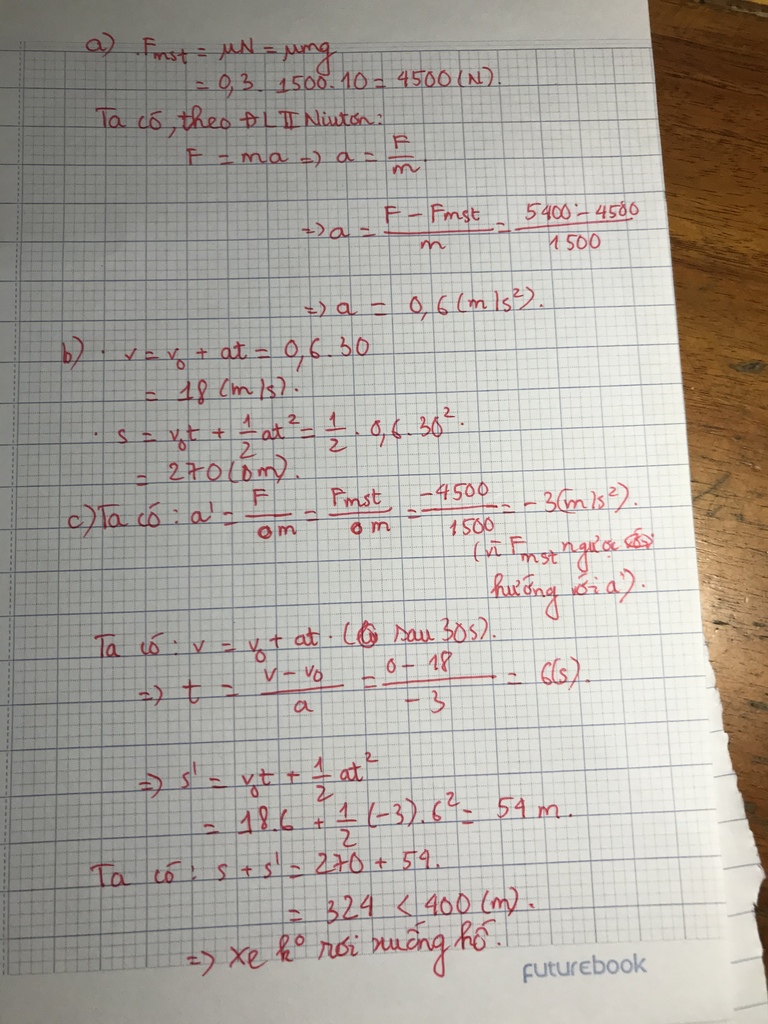 a) Fmst = μN = μmg
= 0,3. 1500.10 = 4500 (N).
Ta có, theo ĐL II Niuton:
F = ma => a = F/m
=> a = (F - Fmst)/m = (5400 - 4500)/1500
=> a = 0,6 (m/s²).
b) . v = v₀ + at = 0,6.30
= 18 (m/s).
. s = v₀t + 1/2 at² = 1/2 . 0,6.30².
= 270 (m).
c) Ta có: a' = F/m = Fmst/m = -4500/1500 = -3 (m/s²).
(vì Fmst ngược
hướng với a').
Ta có: v = v₀ + at. ( sau 30s).
=> t = (v - v₀)/a = (0 - 18)/-3 = 6(s).
=> s' = v₀t + 1/2 at²
= 18.6 + 1/2 (-3).6² = 54 m.
Ta có: s + s' = 270 + 54.
= 324 < 400 (m).
=> xe k° rơi xuống hố.
FUTUREBOOK